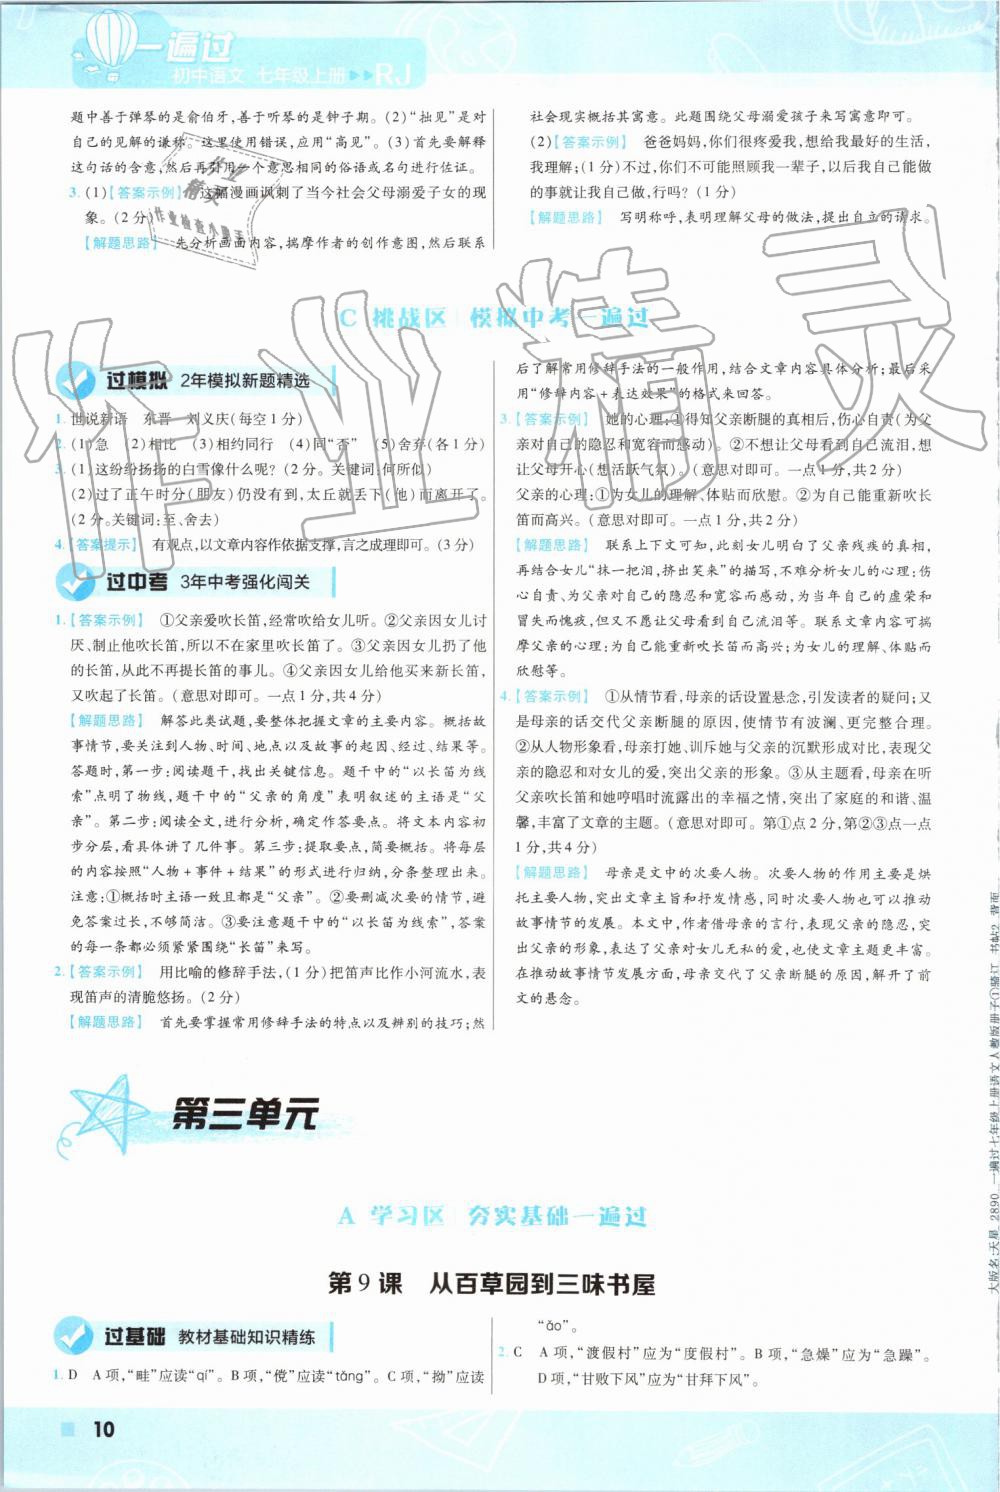 一遍过
初中语文 七年级上册 RJ
题中善于弹琴的是俞伯牙,善于听琴的是钟子期。(2)“拙见”是对
自己的见解的谦称。这里使用错误,应用“高见”。(3)首先要解释
这句话的含意,然后再引用一个意思相同的俗语或名句进行佐证。
3. (1)【答案示例】 这幅漫画讽刺了当今社会父母溺爱子女的现
象。(2分)
【解题思路】 先分析画面内容,揣摩作者的创作意图,然后联系
社会现实概括其寓意。此题围绕父母溺爱孩子来写寓意即可。
(2)【答案示例】 爸爸妈妈,你们很疼爱我,想给我最好的生活,
我理解;(1分)不过,你们不可能照顾我一辈子,以后我自己能做
的事就让我自己做,行吗?(1分)
【解题思路】 写明称呼,表明理解父母的做法,提出自立的请求。
C 挑战区 模拟中考一遍过
过模拟 2年模拟新题精选
1. 世说新语 东晋 刘义庆(每空1分)
2. (1)急 (2)相比 (3)相约同行 (4)同“否” (5)舍弃(各1分)
3. (1)这纷纷扬扬的白雪像什么呢?(2分。关键词:何所似)
(2)过了正午时分(朋友)仍没有到,太丘就丢下(他)而离开了。
(2分。关键词:至、舍去)
4. 【答案提示】 有观点,以文章内容作依据支撑,言之成理即可。(3分)
过中考 3年中考强化闯关
1. 【答案示例】 ①父亲爱吹长笛,经常吹给女儿听。②父亲因女儿讨
厌、制止他吹长笛,所以不在家里吹长笛了。③父亲因女儿扔了他
的长笛,从此不再提长笛的事儿。④父亲因女儿给他买来新长笛,
又吹起了长笛。(意思对即可。一点1分,共4分)
【解题思路】 解答此类试题,要整体把握文章的主要内容。概括故
事情节,要关注到人物、时间、地点以及故事的起因、经过、结果等。
答题时,第一步:阅读题干,找出关键信息。题干中的“以长笛为线
索”点明了物线,题干中的“父亲的角度”表明叙述的主语是“父
亲”。第二步:阅读全文,进行分析,确定作答要点。将文本内容初
步分层,看具体讲了几件事。第三步:提取要点,简要概括。将每层
的内容按照“人物+事件+结果”的形式进行归纳,分条整理出来。
注意:①概括时主语一致且都是“父亲”。②要删减次要的情节,避
免答案过长,不够简洁。③要注意题干中的“以长笛为线索”,答案
的每一条都必须紧紧围绕“长笛”来写。
2. 【答案示例】 用比喻的修辞手法,(1分)把笛声比作小河流水,表
现笛声的清脆悠扬。(2分)
【解题思路】 首先要掌握常用修辞手法的特点以及辨别的技巧;然
后了解常用修辞手法的一般作用,结合文章内容具体分析;最后采
用“修辞内容+表达效果”的格式来回答。
3. 【答案示例】 她的心理:①得知父亲断腿的真相后,伤心自责(为父
亲对自己的隐忍和宽容而感动)。②不想让父亲看到自己流泪,想
让父母开心(想活跃气氛)。(意思对即可。一点1分,共2分)
父亲的心理:①为女儿的理解、体贴而欣慰。②为自己能重新吹长
笛而高兴。(意思对即可。一点1分,共2分)
【解题思路】 联系上下文可知,此刻女儿明白了父亲残疾的真相,
再结合女儿“抹一把泪,挤出笑来”的描写,不难分析女儿的心理:伤
心自责、为父亲对自己的隐忍和宽容而感动,为当年自己的虚荣和
冒失而愧疚,但又不想让父母看到自己流泪等。联系文章内容可揣
摩父亲的心理:为自己能重新吹长笛而高兴;为女儿的理解、体贴而
欣慰等。
4. 【答案示例】 ①从情节看,母亲的话设置悬念,引发读者的疑问;又
是母亲的话交代父亲断腿的原因,使情节有波澜、更完整合理。
②从人物形象看,母亲打她、训斥她与父亲的沉默形成对比,表现父
亲的隐忍和对女儿的爱,突出父亲的形象。③从主题看,母亲在听
父亲吹长笛和她哼唱时流露出的幸福之情,突出了家庭的和谐、温
馨,丰富了文章的主题。(意思对即可。第①点2分,第②③点一点
1分,共4分)
【解题思路】 母亲是文中的次要人物。次要人物的作用主要是烘
托主要人物,突出文章主旨和抒发情感,同时次要人物也可以推动
故事情节的发展。本文中,作者借母亲的言行,表现父亲的隐忍,突
出父亲的形象,表达了父亲对女儿无私的爱,也使文章主题更丰富。
在推动故事情节发展方面,母亲交代了父亲断腿的原因,解开了前
文的悬念。
第三单元
A 学习区 夯实基础一遍过
第9课 从百草园到三味书屋
过基础 教材基础知识精练
1. D A项,“畦”应读“qí”。B项,“傥”应读“tǎng”。C项,“拗”应读
“ǎo”。
2. C A项,“渡假村”应为“度假村”。B项,“急燥”应为“急躁”。
D项,“甘败下风”应为“甘拜下风”。
10
作业精灵
作业检查小助手